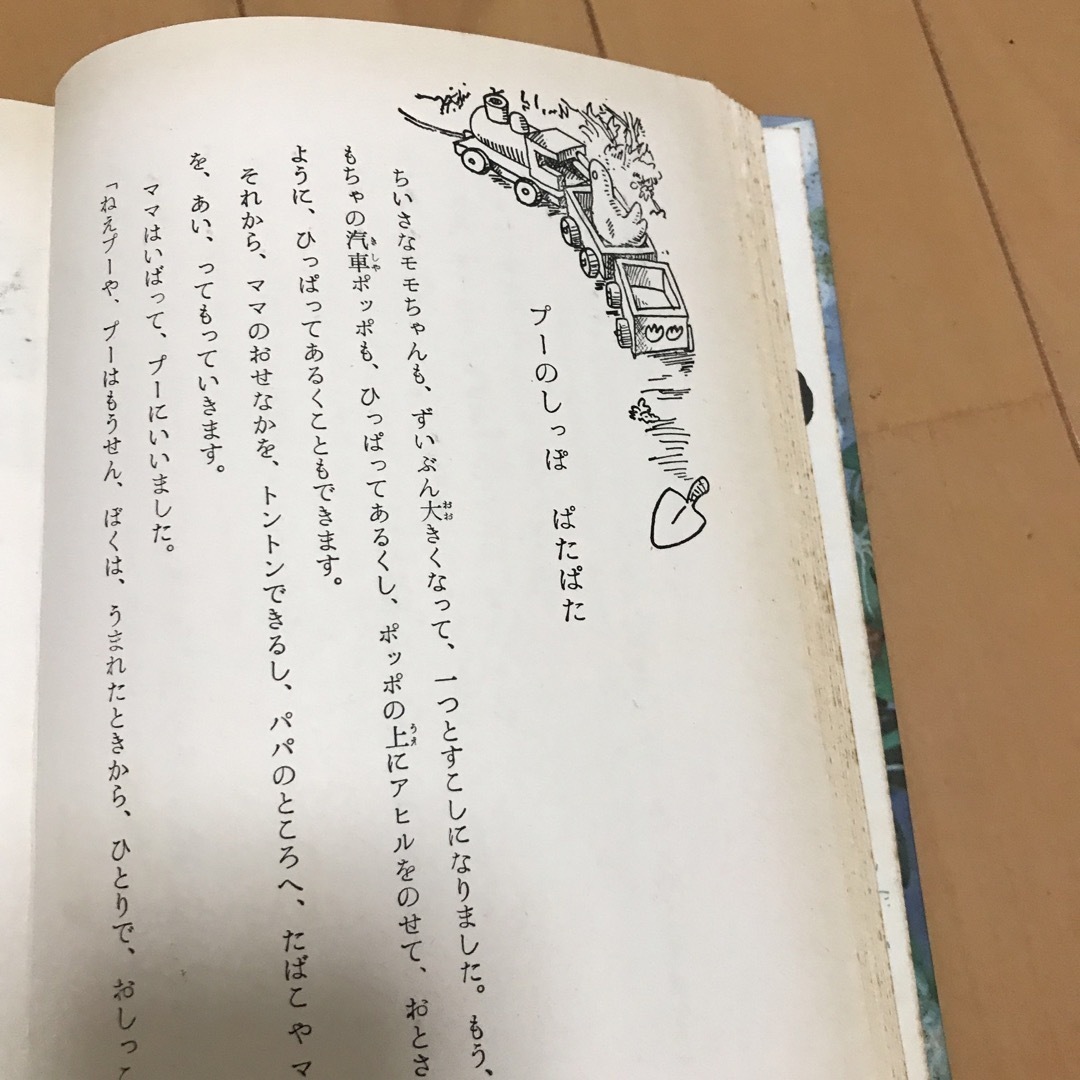 プーのしっぽ　ぱたぱた
ちいさなモモちゃんも、ずいぶん大きくなって、一つとすこしになりました。もう、
もちゃの汽車ポッポも、ひっぱってあるくし、ポッポの上にアヒルをのせて、おとさ
ように、ひっぱってあるくこともできます。
それから、ママのおせなかを、トントンできるし、パパのところへ、たばこやマ
を、あい、ってもっていきます。
ママはいばって、プーにいいました。
「ねえプーや、プーはもうせん、ぼくは、うまれたときから、ひとりで、おしっこ